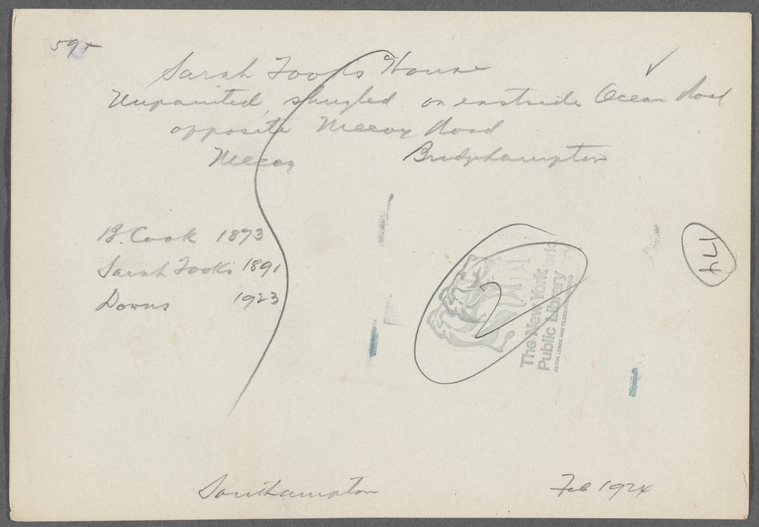 595
Sarah Fooks House
Unpainted, shingled on eastside Ocean Road
opposite Mecox Road
Mecox Bridghampton
B. Cook 1873
Sarah Fooks 1891
Downs 1923
174
2
The New York
Public Library
ASTOR, LENOX AND TILDEN FOUNDATIONS
Southampton Feb 1924